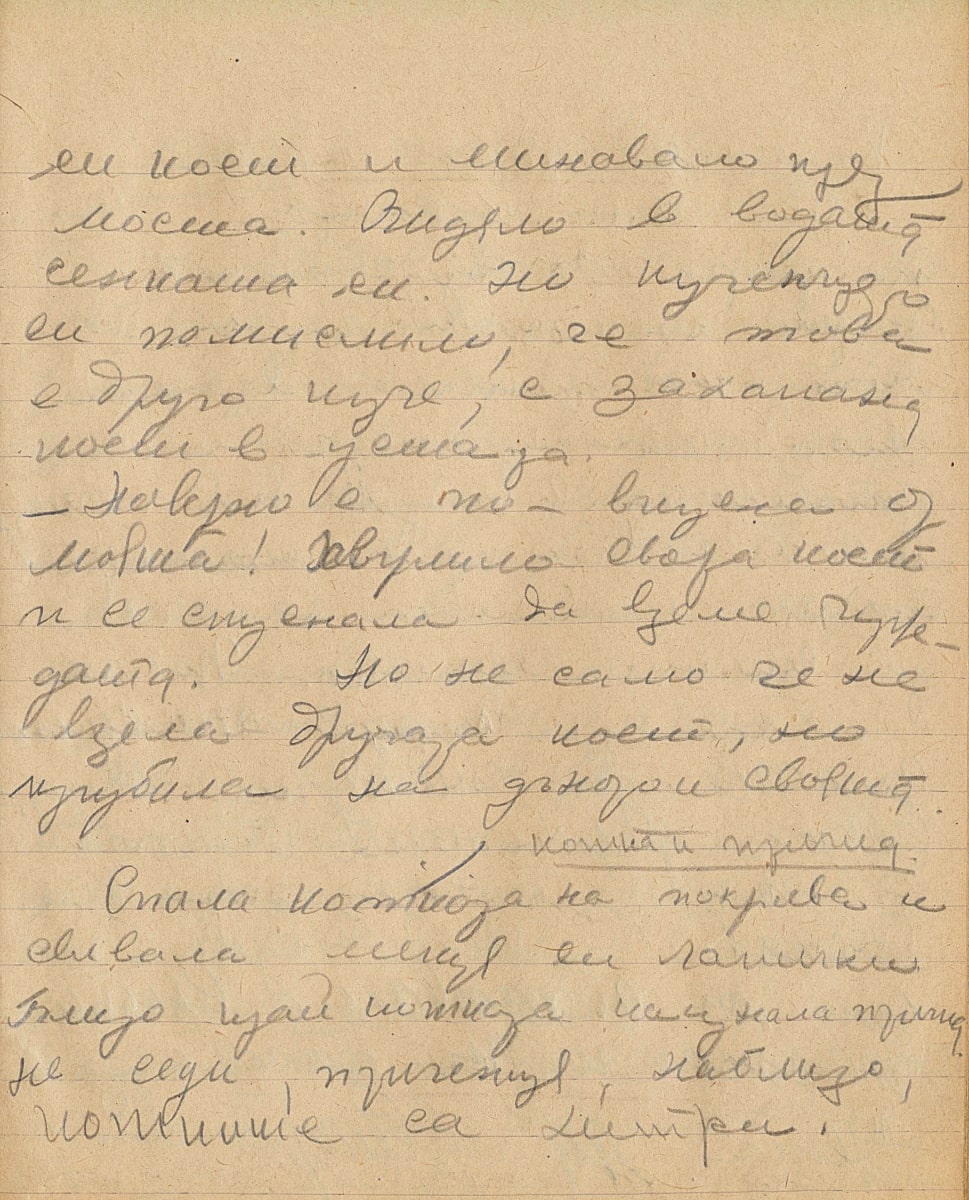 си кост и минавало през
моста. Видяло в водата
сенката си. Но кученцето
си помислило, че това
е друго куче, с захапана
кост в устата.
– Наверно е по – вкусна от
мойта! Хвърлило своята кост
и се спуснала да вземе чуж-
дата. Но не само че не
взела другата кост, но
изгубила на дъното и својта
котка и птичка.
Спала котката на покрива и
свивала меки си лапички
Близо край котката кацнала птичка
не седи, птиченце, наблизо,
котките са хитри.